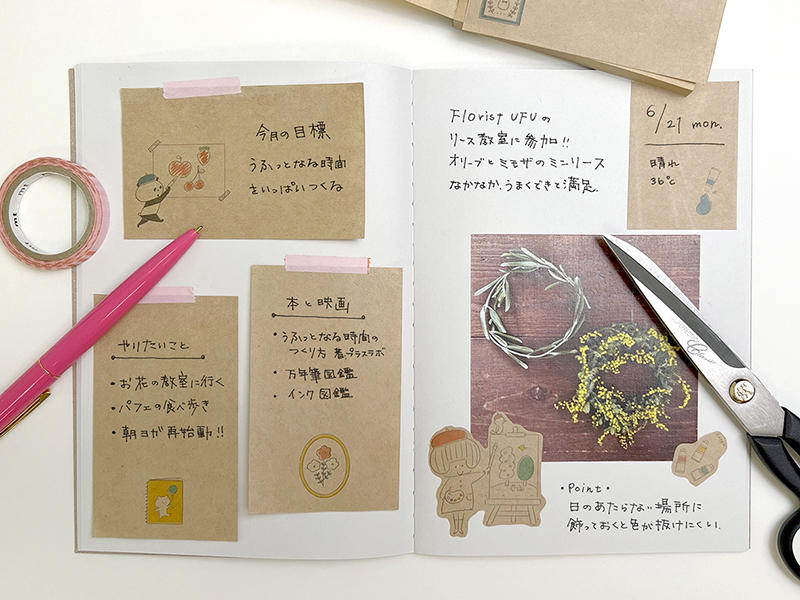 今月の目標
うふっとなる時間
をいっぱいつくる
やりたいこと
・お花の教室に行く
・パフェの食べ歩き
・朝ヨガ再始動!!
本と映画
・うふっとなる時間の
つくり方 著、プラスラボ
・万年筆図鑑
・インク図鑑
Florist UFUの
リース教室に参加!!
オリーブとミモザのミニリース
なかなか、うまくできて満足。
6/21 mon.
晴れ
36℃
・Point・
日のあたらない場所に
飾っておくと色が抜けにくい。
mt
Classic